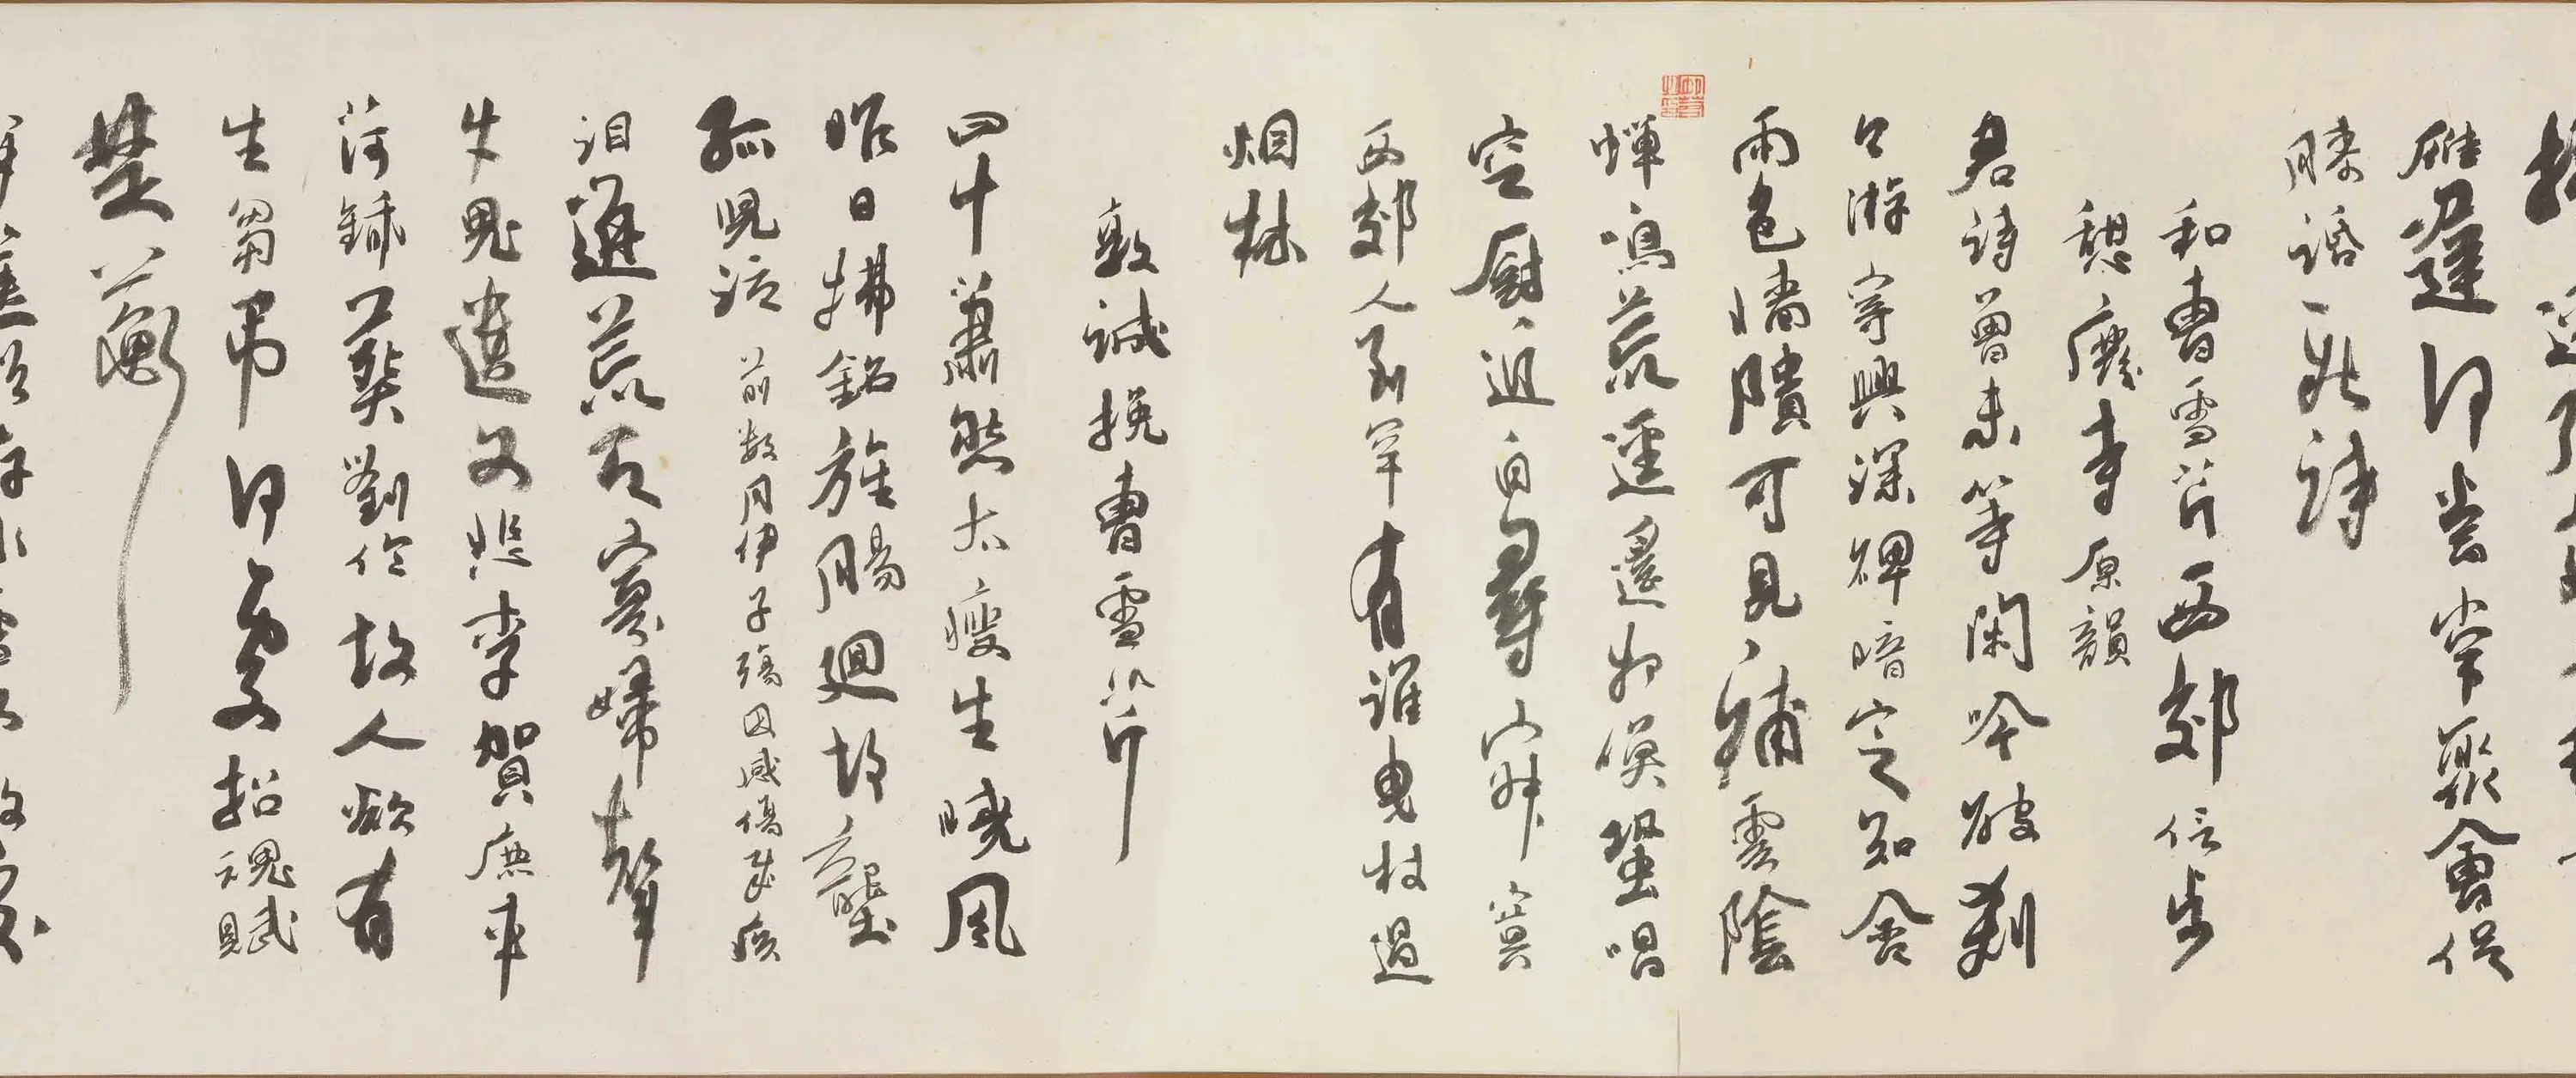 雁遲何當常聚會促
膝話新詩
和曹雪芹西郊信步
憩廢寺原韻
君詩曾未等閑吟破刹
今游寄興深碑暗定知含
雨色墻隤可見補雲陰
蟬鳴荒逕遥相喚蛩唱
空厨近自尋寂寞
西郊人到罕有誰曳杖過
烟林
敦誠挽曹雪芹
四十蕭然太瘦生曉風
昨日拂銘旌腸廻故壟
孤兒泣前数月伊子殤因感傷成疾
淚迸荒天寡婦聲
牛鬼遺文悲李賀鹿車
荷鍤葬劉伶故人欲有
生芻弔何處招魂賦
楚蘅